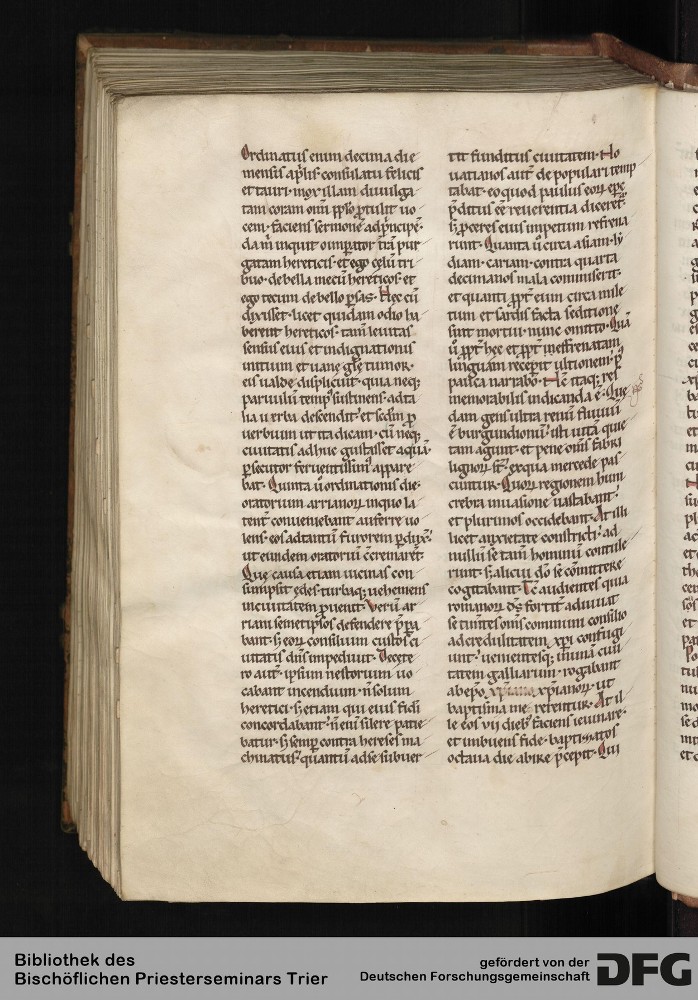 Ordinatus enim decima die
mensis aprł̓is consulatu felicis
et tauri· mox illam diuulga
tam coram om̄i pp̄lo ꝓtulit uo
cem· faciens sermonē ad pͥncipē·
da m̄ inquit o imꝑator t̓rā pur
gatam hereticis· et ego celū tri
buo· debella mecū hereticos· et
ego tecum debello ꝑsas· Hec cū
dixisset· licet quidam odio ha
berent hereticos· tam̄ leuitas
sensus eius et indignationis
initium et uane glē tumor·
eis ualde displicuit· quia neq;
paruulū tempꝰ sustinens· ad ta
lia uerba descendit· et scd̄m ꝓ
uerbium ut ita dicam· cū neq;
ciuitatis adhuc gustasset aquā·
ꝑsecutor feruentissimꝰ appare
bat· Quinta u̓ ordinationis die·
oratorium arrianoꝝ in quo la
tent̓ conueniebant auferre uo
lens· eos ad tantū furorem ꝑdux̓·
ut eundem oratoriū ccremarēt·
Que causa etiam uicinas con
sumpsit edes· turbaq; uehemens
in ciuitatem ꝓuenit· Verū ar
riani semetipsos defendere pͥpa
bant· s; eoꝝ consilium custos ci
uitatis dn̄s impediuit· Decete
ro aut̄· ipsum nestorium uo
cabant incendium· n̄ solum
heretici· s; etiam qui eius fidi
concordabant· n̄ eni silere patie
batur· s; semꝑ contra hereses ma
chinatus· quantū ad se subuer
tit funditus ciuitatem· No
uatianos aut̄ de populari temp
tabat· eo quod paulus eoꝝ ep̄c
pͥditus eēt reuerentia· diceret·
s; ꝓceres eius impetum refrena
runt· Quanta u̓ circa asiam· ly
diam· cariam· contra quarta
decimanos mala commiserit·
et quanti ꝓpt̓ eum circa mile
tum et sardis facta seditione
sunt mortui· nunc omitto· Quā
u̓ ꝓpt̓ hec et ꝓpt̓ ineffrenatam
linguam recepit ultionem· ꝑ
pauca narrabo· Hē itaq; res
memorabilis indicanda ē· Que
dam gens ultra renū fluuiū
ē burgundionū· isti uitā quie
tam agunt· et pene om̄s fabri
lignoꝝ st̄· ex qua mercede pas
cuntur· Quoꝝ regionem huni
crebra inuasione uastabant·
et plurimos occidebant· At illi
licet anxietate constricti· ad
nullū se tam̄ hominū contule
runt· s; alicui dō se cōmittere
cogitabant· Tc̄ audientes quia
romanoꝝ ds̄ fortit̓ adiuuat
se timentes· om̄s communi consilio
ad credulitatem xp̄i confugi
unt· uenientesq; in unā ciui
tatem galliarum· rogabant
ab ep̄o xp̄ianoꝝ ut
baptisma me rerentur· At il
le eos vii dieb; faciens ieiunare·
et imbuens fide· baptizatos
octaua die abire p̄cepit· Qui
Bibliothek des
Bischöflichen Priesterseminars Trier
gefördert von der
Deutschen Forschungsgemeinschaft
DFG